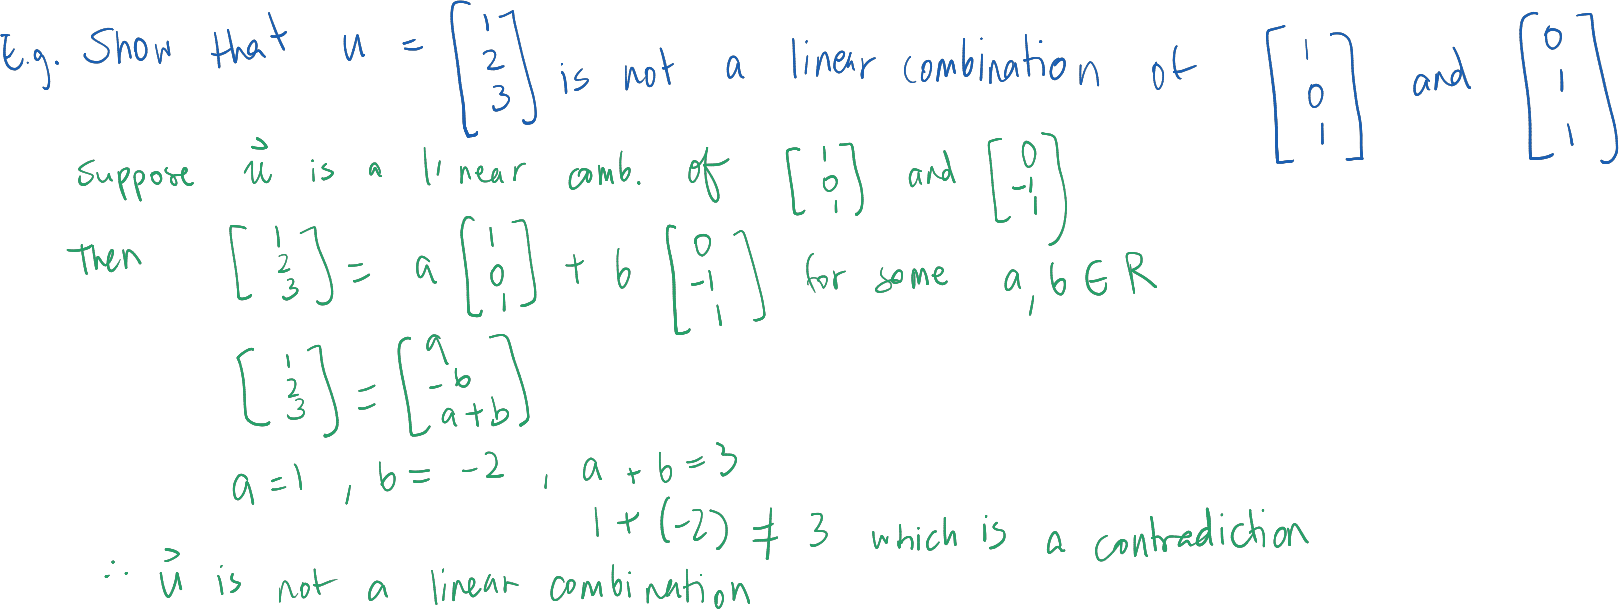 E.g. Show that u = [1 2 3] is not a linear combination of [1 0 1] and [0 1 1]
Suppose u⃗ is a linear comb. of [1 0 1] and [0 -1 1]
Then [1 2 3] = a [1 0 1] + b [0 -1 1] for some a, b ∈ R
[1 2 3] = [a -b a+b]
a = 1 , b = -2 , a + b = 3
1 + (-2) ≠ 3 which is a contradiction
∴ u⃗ is not a linear combination